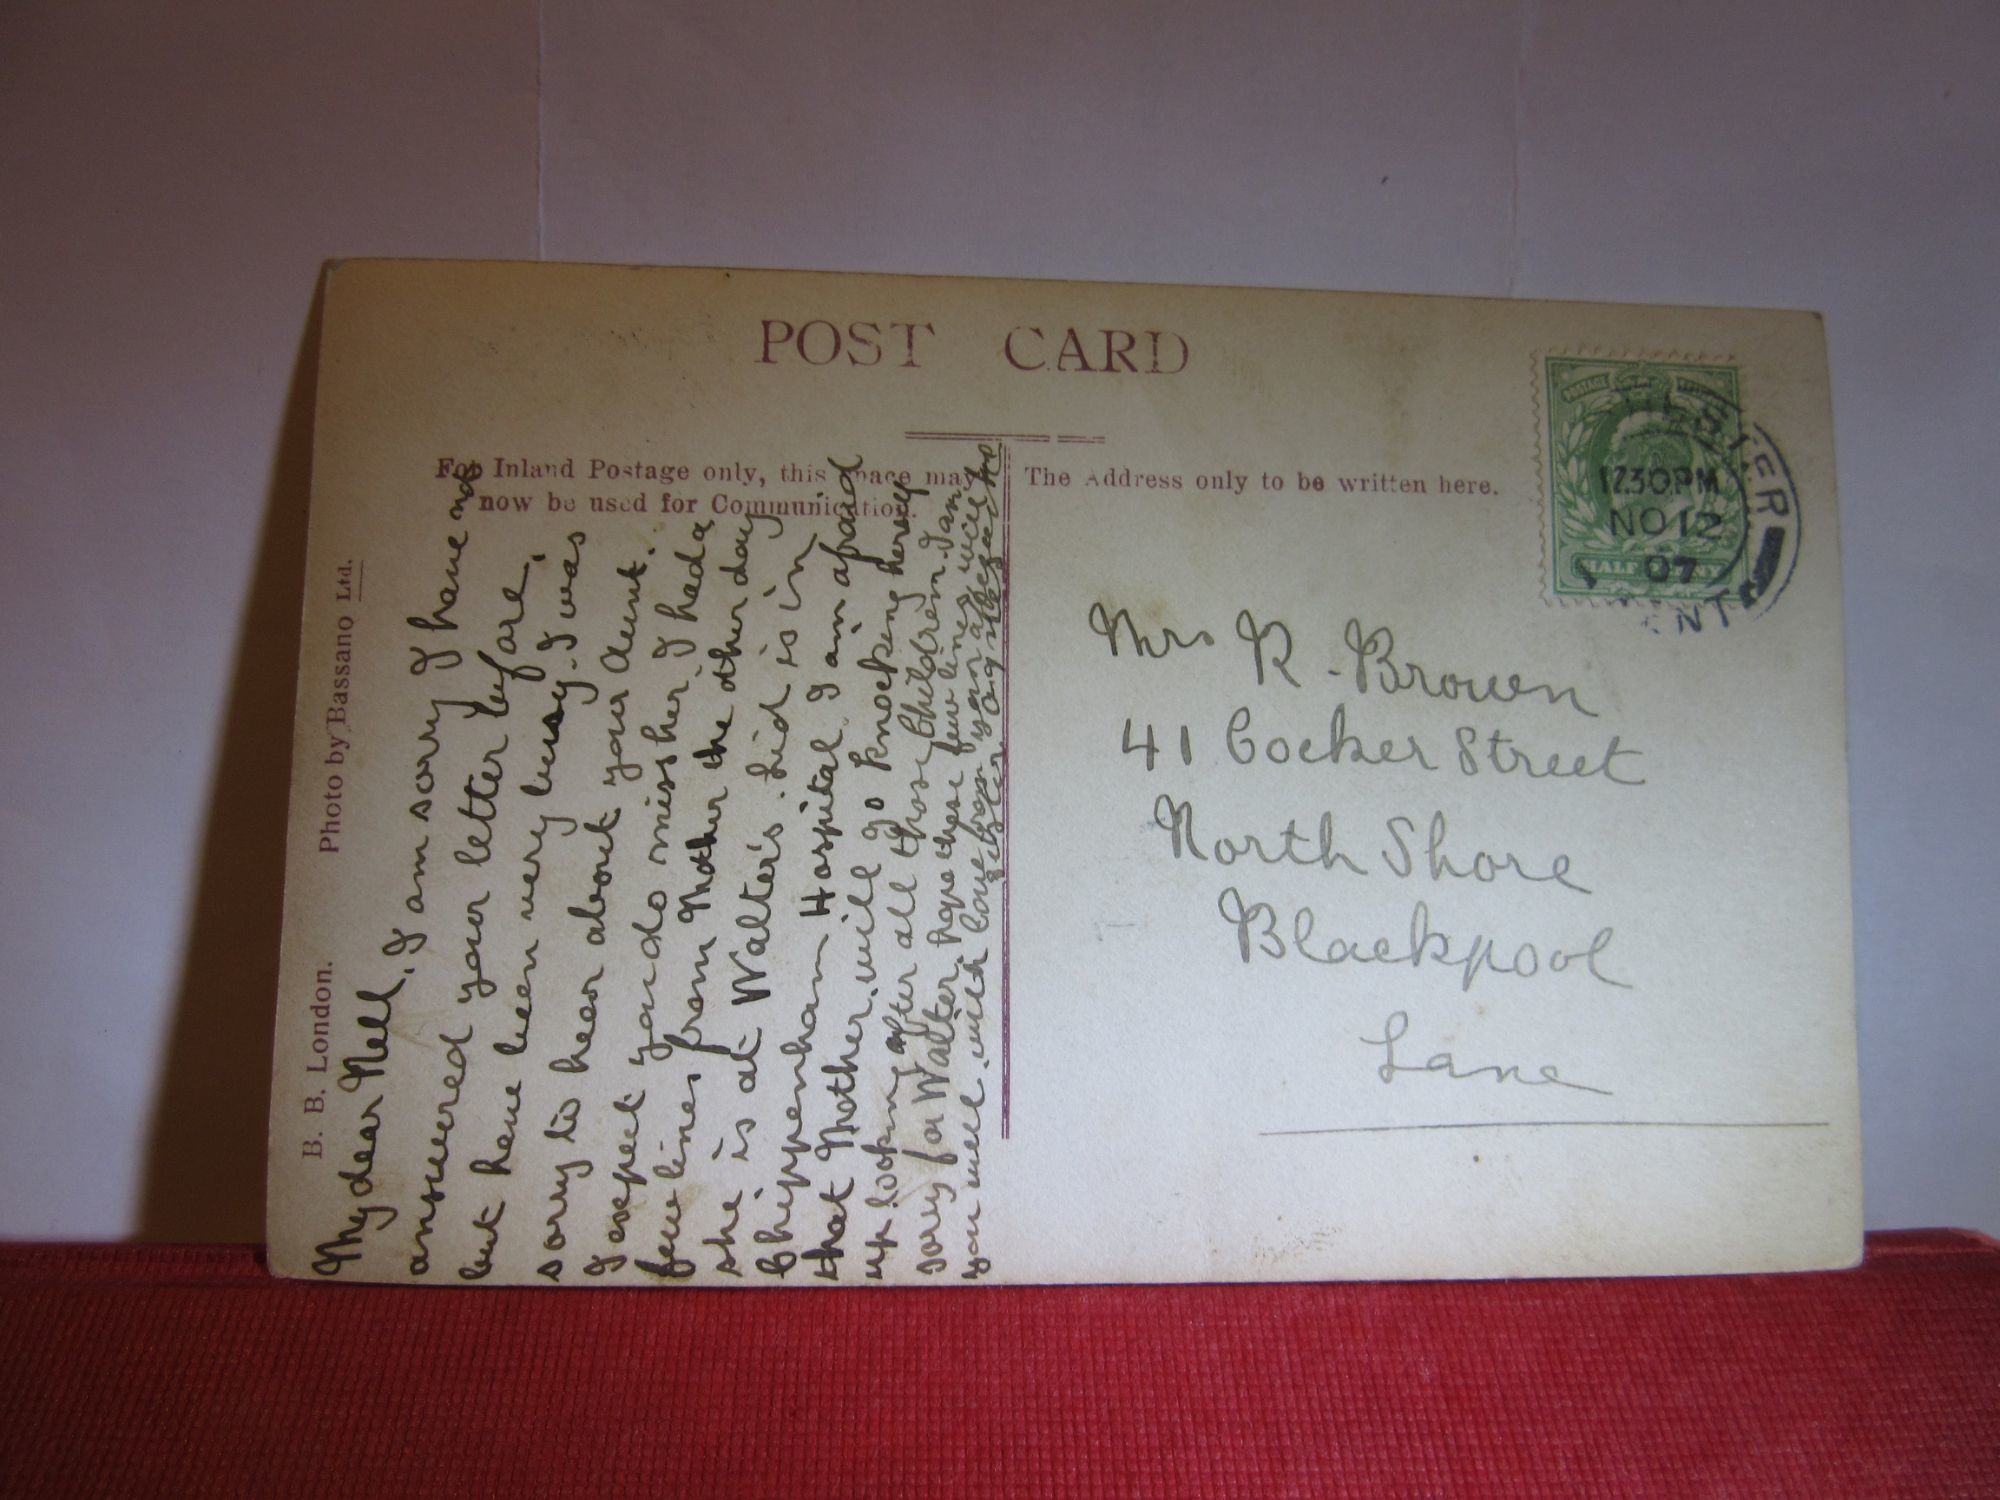 POST CARD
For Inland Postage only, this space may
now be used for Communication.
The Address only to be written here.
B. B. London. Photo by Bassano Ltd.
My dear Nell, I am sorry I have not
answered your letter before,
but have been very busy. I was
sorry to hear about your Aunt.
I expect you do miss her, I had a
few lines from Mother the other day
she is at Walter's. Lid is in
Chippenham Hospital. I am afraid
that Mother will go knocking herself
up looking after all those children. I am
sorry for Walter, hope these few lines will find
you well, with love from your aff
Sister
Mrs R. Brown
41 Cocker Street
North Shore
Blackpool
Lane
1230PM
NO 12
07
HALF PENNY
POSTAGE